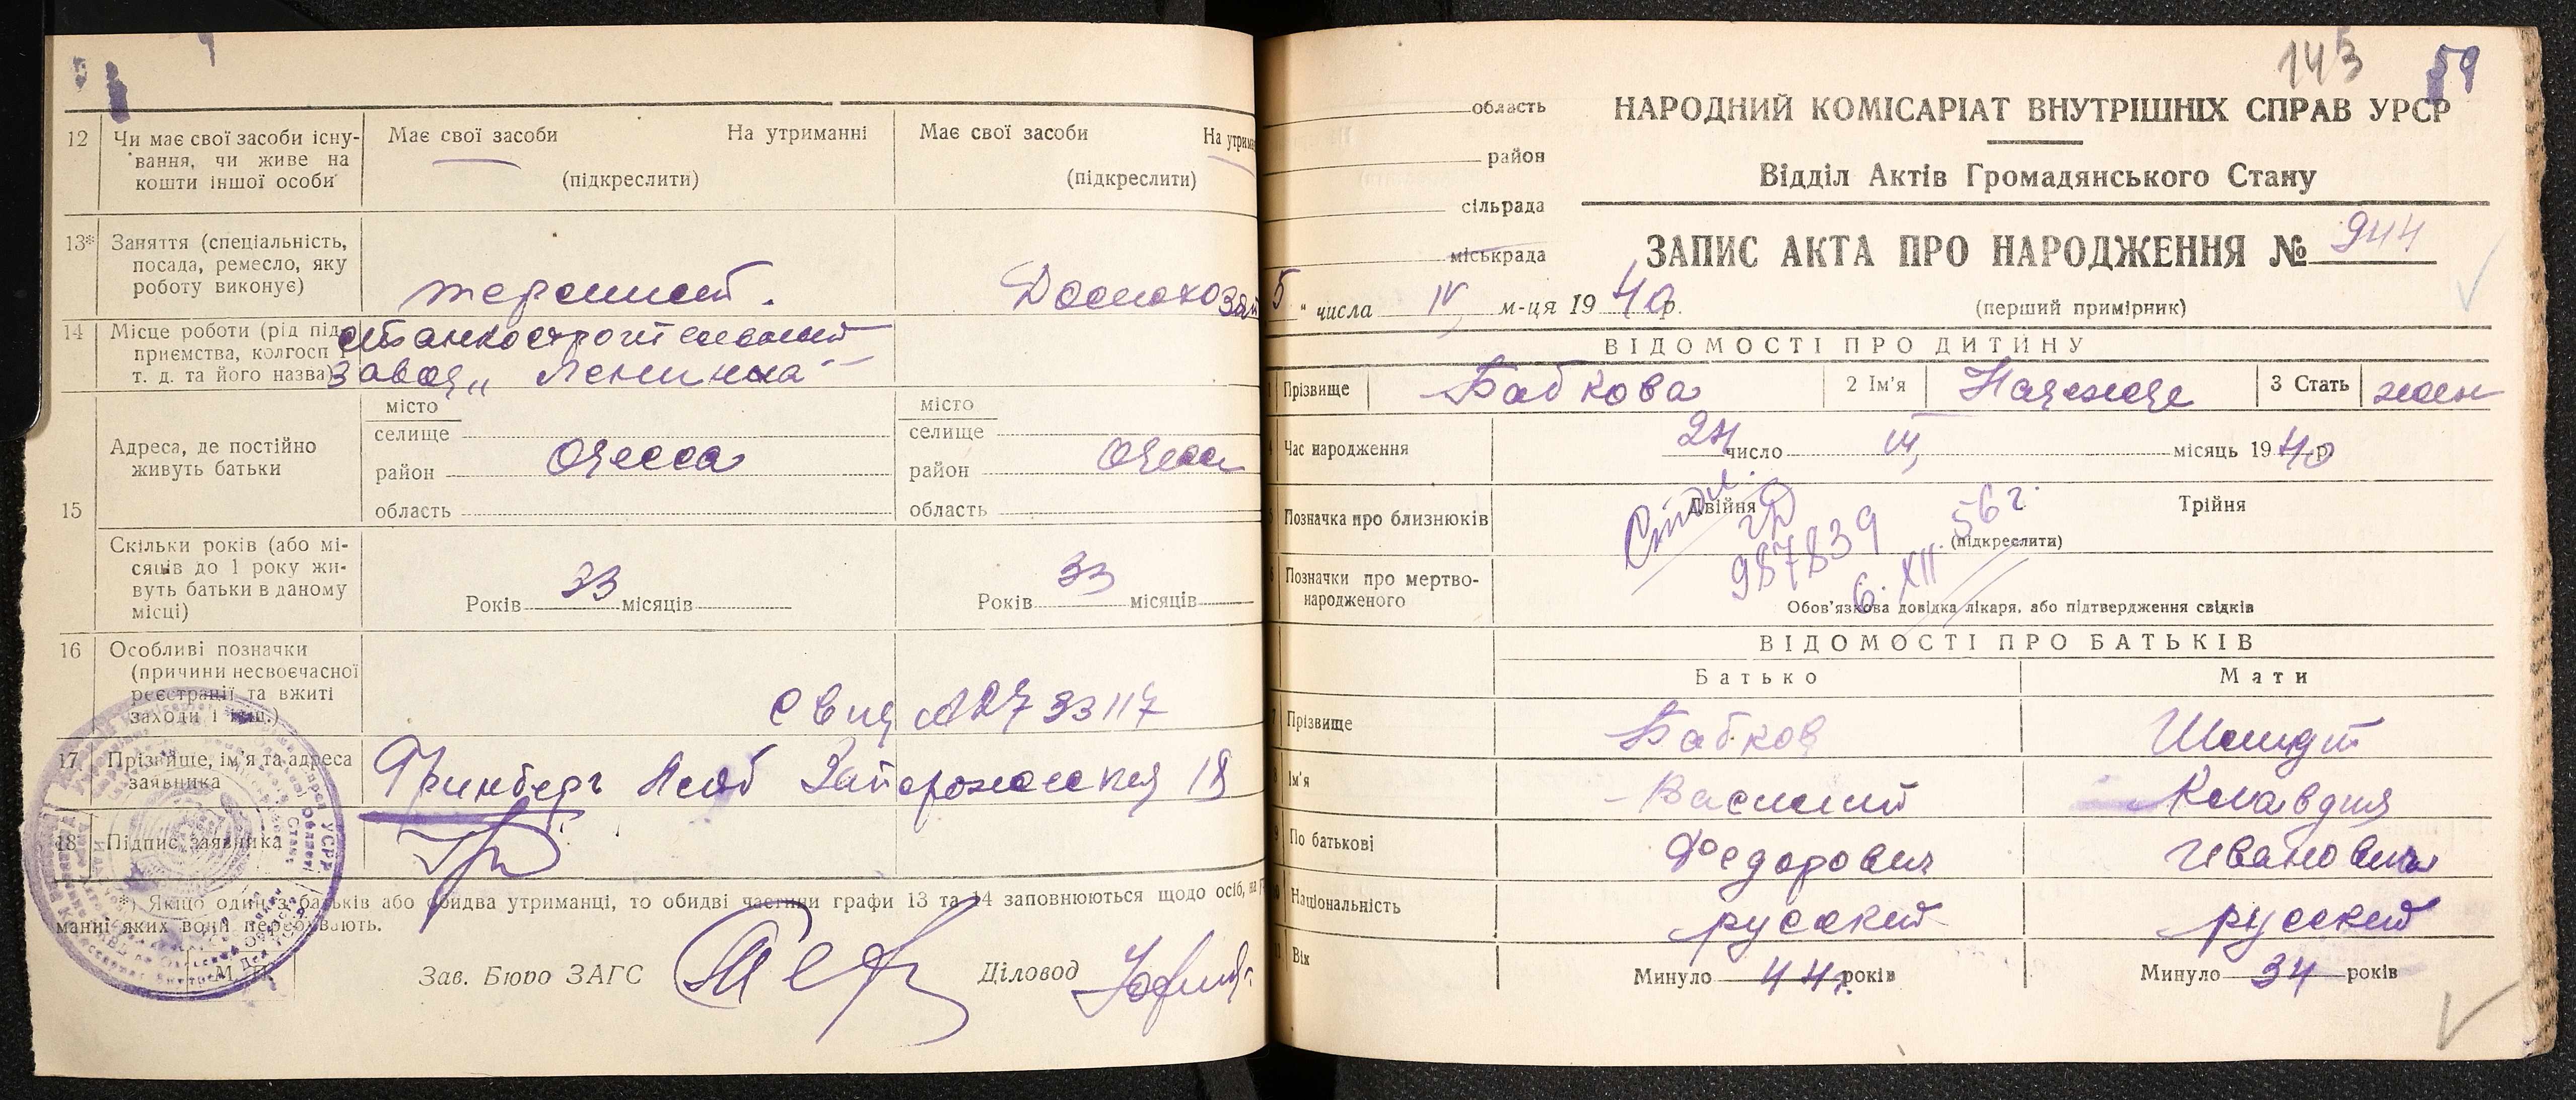 12 Чи має свої засоби існування, чи живе на кошти іншої особи
Має свої засоби На утриманні
(підкреслити)
Має свої засоби На утрим
(підкреслити)
13* Заняття (спеціальність, посада, ремесло, яку роботу виконує)
Домохозяй
14 Місце роботи (рід підприємства, колгосп і т. д. та його назва)
станкостроительный
завод „Ленинка"
15 Адреса, де постійно живуть батьки
місто
селище
район Одесса
область
місто
селище
район Одесс
область
Скільки років (або місяців до 1 року живуть батьки в даному місці)
Років 33 місяців
Років 33 місяців
16 Особливі позначки (причини несвоєчасної реєстрації та вжиті заходи і інш.)
Свид
17 Прізвище, ім'я та адреса заявника
Гринберг Запорожская 18
18 Підпис заявника
*) Якщо один з батьків або обидва утриманці, то обидві частини графи 13 та 14 заповнюються щодо осіб, на у
манні яких вони перебувають.
М. П.
Зав. Бюро ЗАГС
Діловод
143 59
область
район
сільрада
міськрада
НАРОДНИЙ КОМІСАРІАТ ВНУТРІШНІХ СПРАВ УРСР
Відділ Актів Громадянського Стану
ЗАПИС АКТА ПРО НАРОДЖЕННЯ № 944
5 " числа IV м-ця 1940 р.
(перший примірник)
ВІДОМОСТІ ПРО ДИТИНУ
Прізвище Бабкова 2 Ім'я Надежда 3 Стать жен
Час народження 24 число III місяць 1940 р.
Позначка про близнюків
Двійня Трійня
(підкреслити)
987839
6. XII. 56 г.
Позначки про мертвонародженого
Обов'язкова довідка лікаря, або підтвердження свідків
ВІДОМОСТІ ПРО БАТЬКІВ
Батько Мати
Прізвище Бабков Шмидт
Ім'я Василий Клавдия
По батькові Федорович Ивановна
Національність русский русский
Вік Минуло 44 років Минуло 34 років